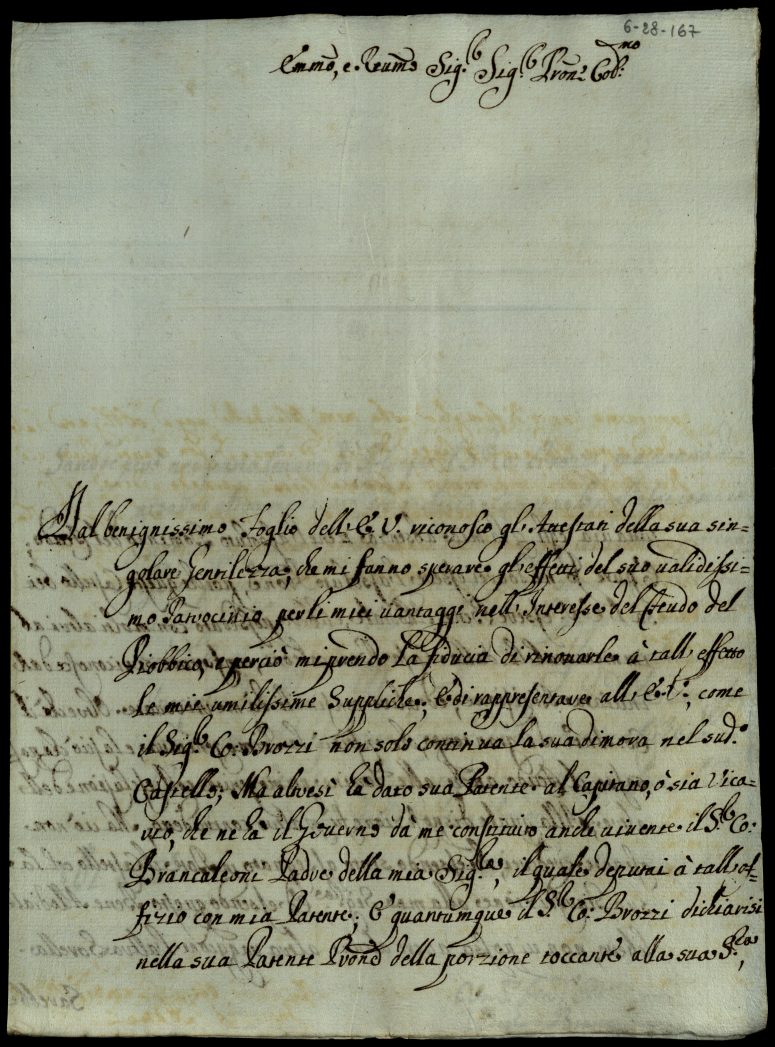 6-28-167
Emmo, e Reumo Sig.r Sig.r Pron.e Col.mo
Dal benignissimo Foglio dell' E. V. riconosco gl'Attestati della sua sin-
golare Gentilezza, che mi fanno sperare gl'effetti del suo ualidissi-
mo Patrocinio per li miei uantaggi nell' Interesse del Feudo del
Piobbico, e perciò mi prendo la fiducia di rinouarle à tall' effetto
le mie umilissime Suppliche, e di rappresentare all' E. V., come
il Sig.r Co: Brozzi non solo continua la sua dimora nel sud.o
Castello; Ma altresì hà dato sua Patente al Capitano, ò sia Vica-
rio, che ne hà il Gouerno dà me constituito anche uiuente il S.r Co:
Brancaleoni Padre della mia Sig.ra, il quale deputai à tall' of-
fizio con mia Patente; E quantumque il S.r Co: Brozzi dichiarisi
nella sua Patente Prone della porzione toccante alla sua S.ra,